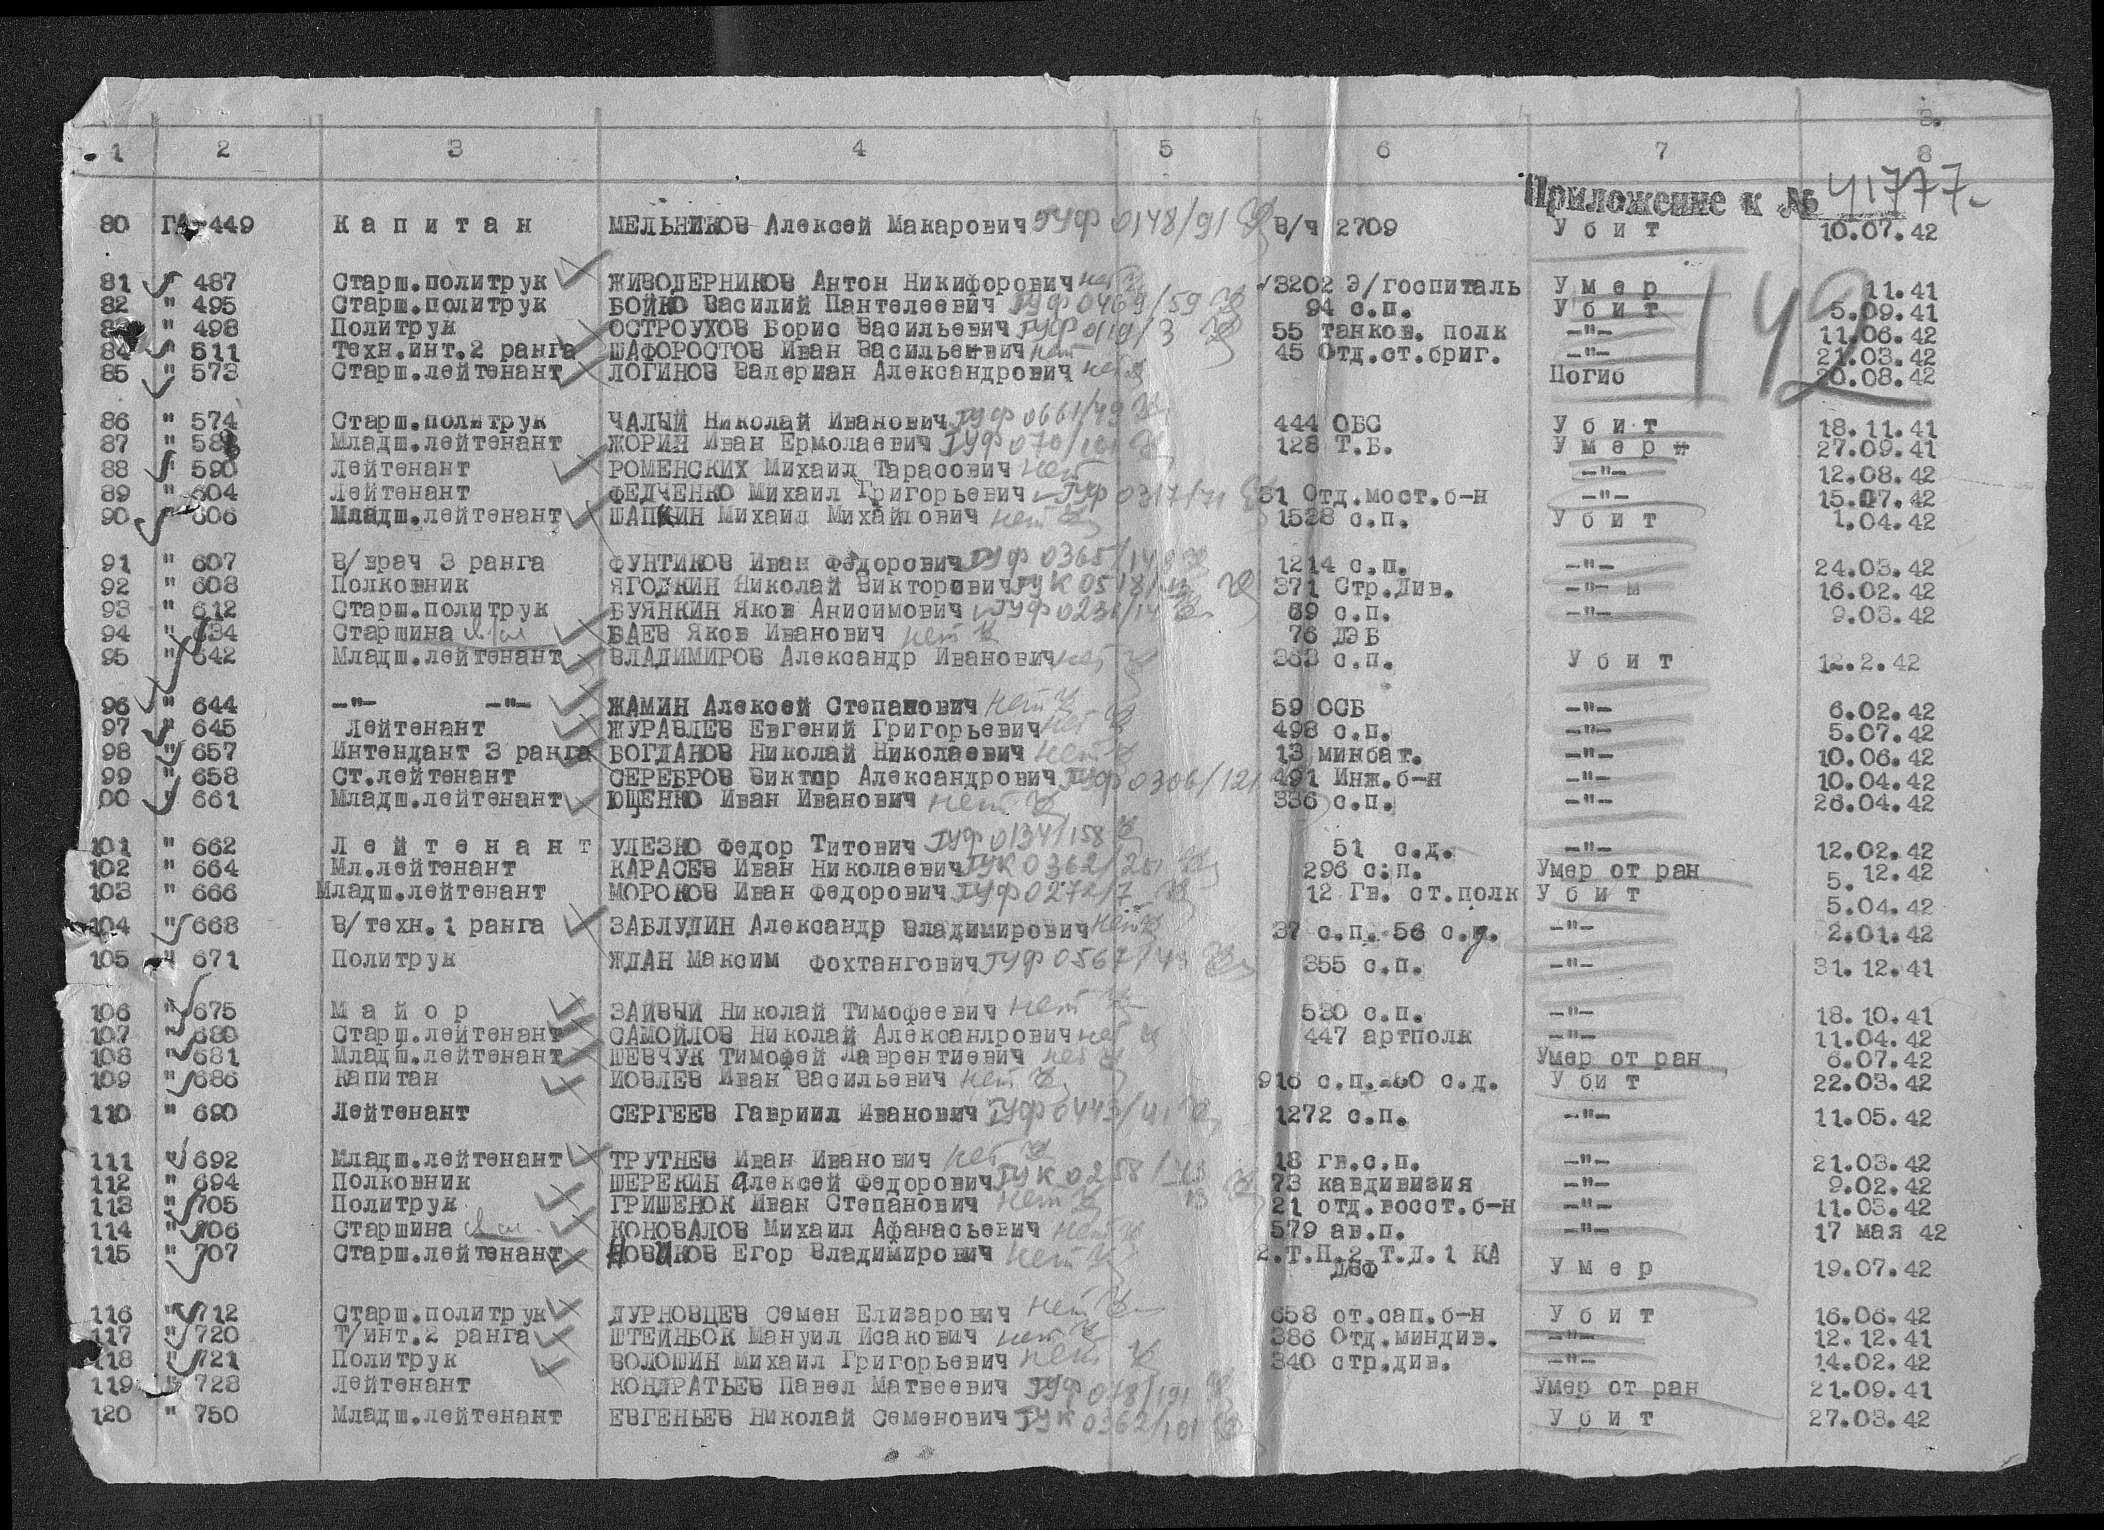 8.
1 2 3 4 5 6 7 8
Приложение к № 41777
80 ГА-449 Капитан МЕЛЬНИКОВ Алексей Макарович ГУФ 0148/91 В/ч 2709 Убит 10.07.42
142
81 " 487 Старш.политрук ЖИВОДЕРНИКОВ Антон Никифорович нет 3202 Э/госпиталь Умер 11.41
82 " 495 Старш.политрук БОЙКО Василий Пантелеевич ГУФ 0469/59 94 с.п. Убит 5.09.41
83 " 498 Политрук ОСТРОУХОВ Борис Васильевич ГУФ 0119/3 55 танков. полк -"- 11.06.42
84 " 511 Техн.инт.2 ранга ШАФОРОСТОВ Иван Васильевич нет 45 Отд.ст.бриг. -"- 21.03.42
85 " 573 Старш.лейтенант ЛОГИНОВ Валериан Александрович нет Погиб 20.08.42
86 " 574 Старш.политрук ЧАЛЫЙ Николай Иванович ГУФ 0661/49 444 ОБС Убит 18.11.41
87 " 58 Младш.лейтенант ЖОРИН Иван Ермолаевич ГУФ 070/101 128 Т.Б. Умер 27.09.41
88 " 590 Лейтенант РОМЕНСКИХ Михаил Тарасович нет -"- 12.08.42
89 " 604 Лейтенант ФЕДЧЕНКО Михаил Григорьевич ГУФ 0317/71 51 Отд.мост.б-н -"- 15.07.42
90 " 606 Младш.лейтенант ШАПКИН Михаил Михайлович нет 1538 с.п. Убит 1.04.42
91 " 607 В/врач 3 ранга ФУНТИКОВ Иван Федорович ГУФ 0365/14 1214 с.п. -"- 24.03.42
92 " 608 Полковник ЯГОДКИН Николай Викторович ГУК 0518/ 371 Стр.Див. -"- м 16.02.42
93 " 612 Старш.политрук БУЯНКИН Яков Анисимович ГУФ 0231/14 69 с.п. -"- 9.03.42
94 " 634 Старшина БАЕВ Яков Иванович нет 76 ДЭБ
95 " 642 Младш.лейтенант ВЛАДИМИРОВ Александр Иванович нет 363 с.п. Убит 12.2.42
96 " 644 -"- -"- ЖАМИН Алексей Степанович нет 59 ОСБ -"- 6.02.42
97 " 645 Лейтенант ЖУРАВЛЕВ Евгений Григорьевич нет 498 с.п. -"- 5.07.42
98 " 657 Интендант 3 ранга БОГДАНОВ Николай Николаевич нет 13 минбат. -"- 10.06.42
99 " 658 Ст.лейтенант СЕРЕБРОВ Виктор Александрович ГУФ 0306/121 491 Инж.б-н -"- 10.04.42
00 " 661 Младш.лейтенант ЮЩЕНКО Иван Иванович нет 336 с.п. -"- 26.04.42
101 " 662 Лейтенант УЛЕЗКО Федор Титович ГУФ 0134/158 51 с.д. -"- 12.02.42
102 " 664 Мл.лейтенант КАРАСЕВ Иван Николаевич ГУК 0362/251 296 с.п. Умер от ран 5.12.42
103 " 666 Младш.лейтенант МОРОКОВ Иван Федорович ГУФ 0272/7 12 Гв. ст.полк Убит 5.04.42
104 " 668 В/техн.1 ранга ЗАБЛУДИН Александр Владимирович нет 37 с.п. 56 с.д. -"- 2.01.42
105 " 671 Политрук ЖДАН Максим Фохтангович ГУФ 0567/43 355 с.п. -"- 31.12.41
106 " 675 Майор ЗАЙВЫЙ Николай Тимофеевич нет 530 с.п. -"- 18.10.41
107 " 680 Старш.лейтенант САМОЙЛОВ Николай Александрович нет 447 артполк -"- 11.04.42
108 " 681 Младш.лейтенант ШЕВЧУК Тимофей Лаврентиевич нет Умер от ран 6.07.42
109 " 686 Капитан ИОВЛЕВ Иван Васильевич нет 916 с.п. 80 с.д. Убит 22.03.42
110 " 690 Лейтенант СЕРГЕЕВ Гавриил Иванович ГУФ 0443/41 1272 с.п. -"- 11.05.42
111 " 692 Младш.лейтенант ТРУТНЕВ Иван Иванович нет 18 гв.с.п. -"- 21.03.42
112 " 694 Полковник ШЕРЕКИН Алексей Федорович ГУК 0258/43 73 кавдивизия -"- 9.02.42
113 " 705 Политрук ГРИШЕНОК Иван Степанович нет 21 отд.восст.б-н -"- 11.03.42
114 " 706 Старшина КОНОВАЛОВ Михаил Афанасьевич нет 579 ав.п. -"- 17 мая 42
115 " 707 Старш.лейтенант НОВИКОВ Егор Владимирович нет 2.Т.П.2 Т.Д.1 КА ДВФ Умер 19.07.42
116 " 712 Старш.политрук ДУРНОВЦЕВ Семен Елизарович нет 658 от.сап.б-н Убит 16.06.42
117 " 720 Т/инт.2 ранга ШТЕЙНБОК Мануил Исакович нет 386 Отд.миндив. -"- 12.12.41
118 " 721 Политрук ВОЛОШИН Михаил Григорьевич нет 340 стр.див. -"- 14.02.42
119 " 728 Лейтенант КОНДРАТЬЕВ Павел Матвеевич ГУФ 078/191 Умер от ран 21.09.41
120 " 750 Младш.лейтенант ЕВГЕНЬЕВ Николай Семенович ГУК 0362/101 Убит 27.03.42